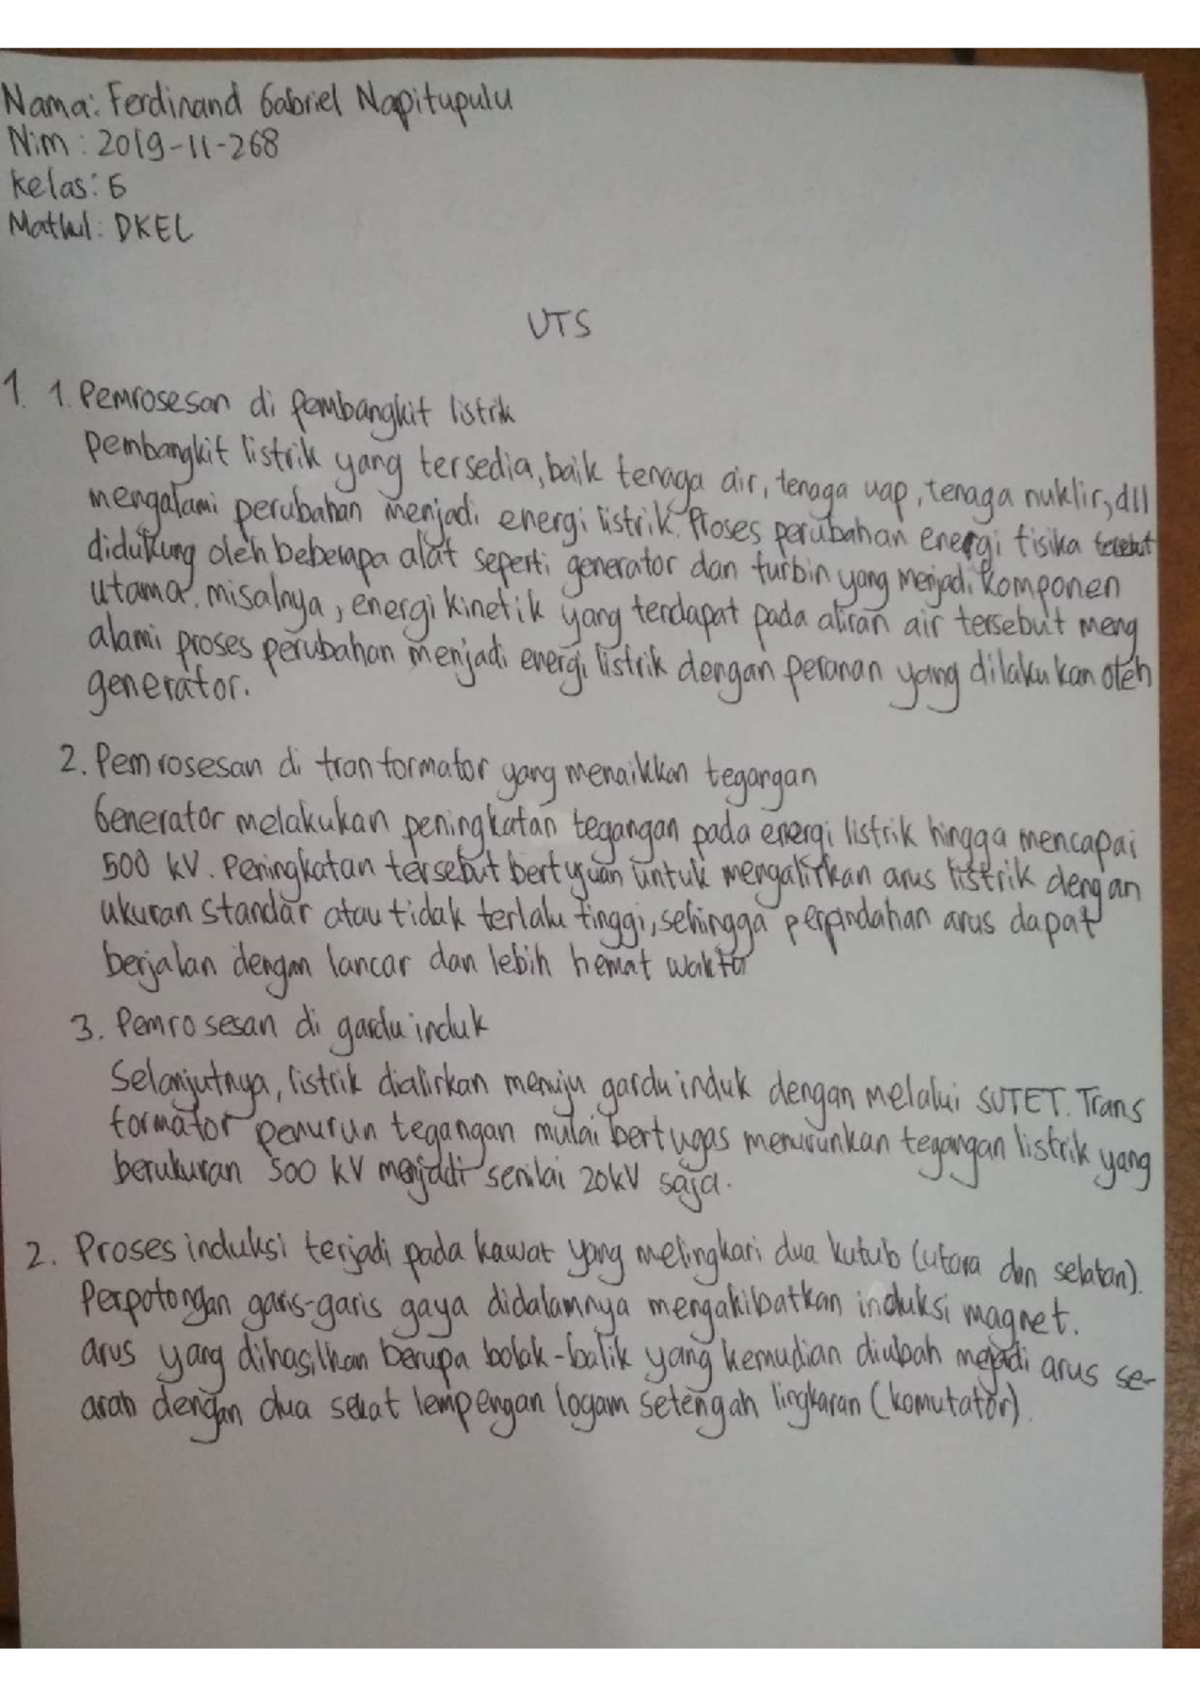 Nama: Ferdinand Gabriel Napitupulu
Nim : 2019-11-268
Kelas: G
Matkul: DKEL
UTS
1. 1. Pemrosesan di pembangkit listrik
Pembangkit listrik yang tersedia, baik tenaga air, tenaga uap, tenaga nuklir, dll
mengalami perubahan menjadi energi listrik. Proses perubahan energi fisika tersebut
didukung oleh beberapa alat seperti generator dan turbin yang menjadi komponen
utama. misalnya, energi kinetik yang terdapat pada aliran air tersebut meng
alami proses perubahan menjadi energi listrik dengan peranan yang dilakukan oleh
generator.
2. Pemrosesan di tranformator yang menaikkan tegangan
Generator melakukan peningkatan tegangan pada energi listrik hingga mencapai
500 kV. Peningkatan tersebut bertujuan untuk mengalirkan arus listrik dengan
ukuran standar atau tidak terlalu tinggi, sehingga perpindahan arus dapat
berjalan dengan lancar dan lebih hemat waktu
3. Pemrosesan di gardu induk
Selanjutnya, listrik dialirkan menuju gardu induk dengan melalui SUTET. Trans
formator penurun tegangan mulai bertugas menurunkan tegangan listrik yang
berukuran 500 kV menjadi senilai 20kV saja.
2. Proses induksi terjadi pada kawat yang melingkari dua kutub (utara dan selatan).
Perpotongan garis-garis gaya didalamnya mengakibatkan induksi magnet.
arus yang dihasilkan berupa bolak-balik yang kemudian diubah mejadi arus se-
arah dengan dua sekat lempengan logam setengah lingkaran (komutator).